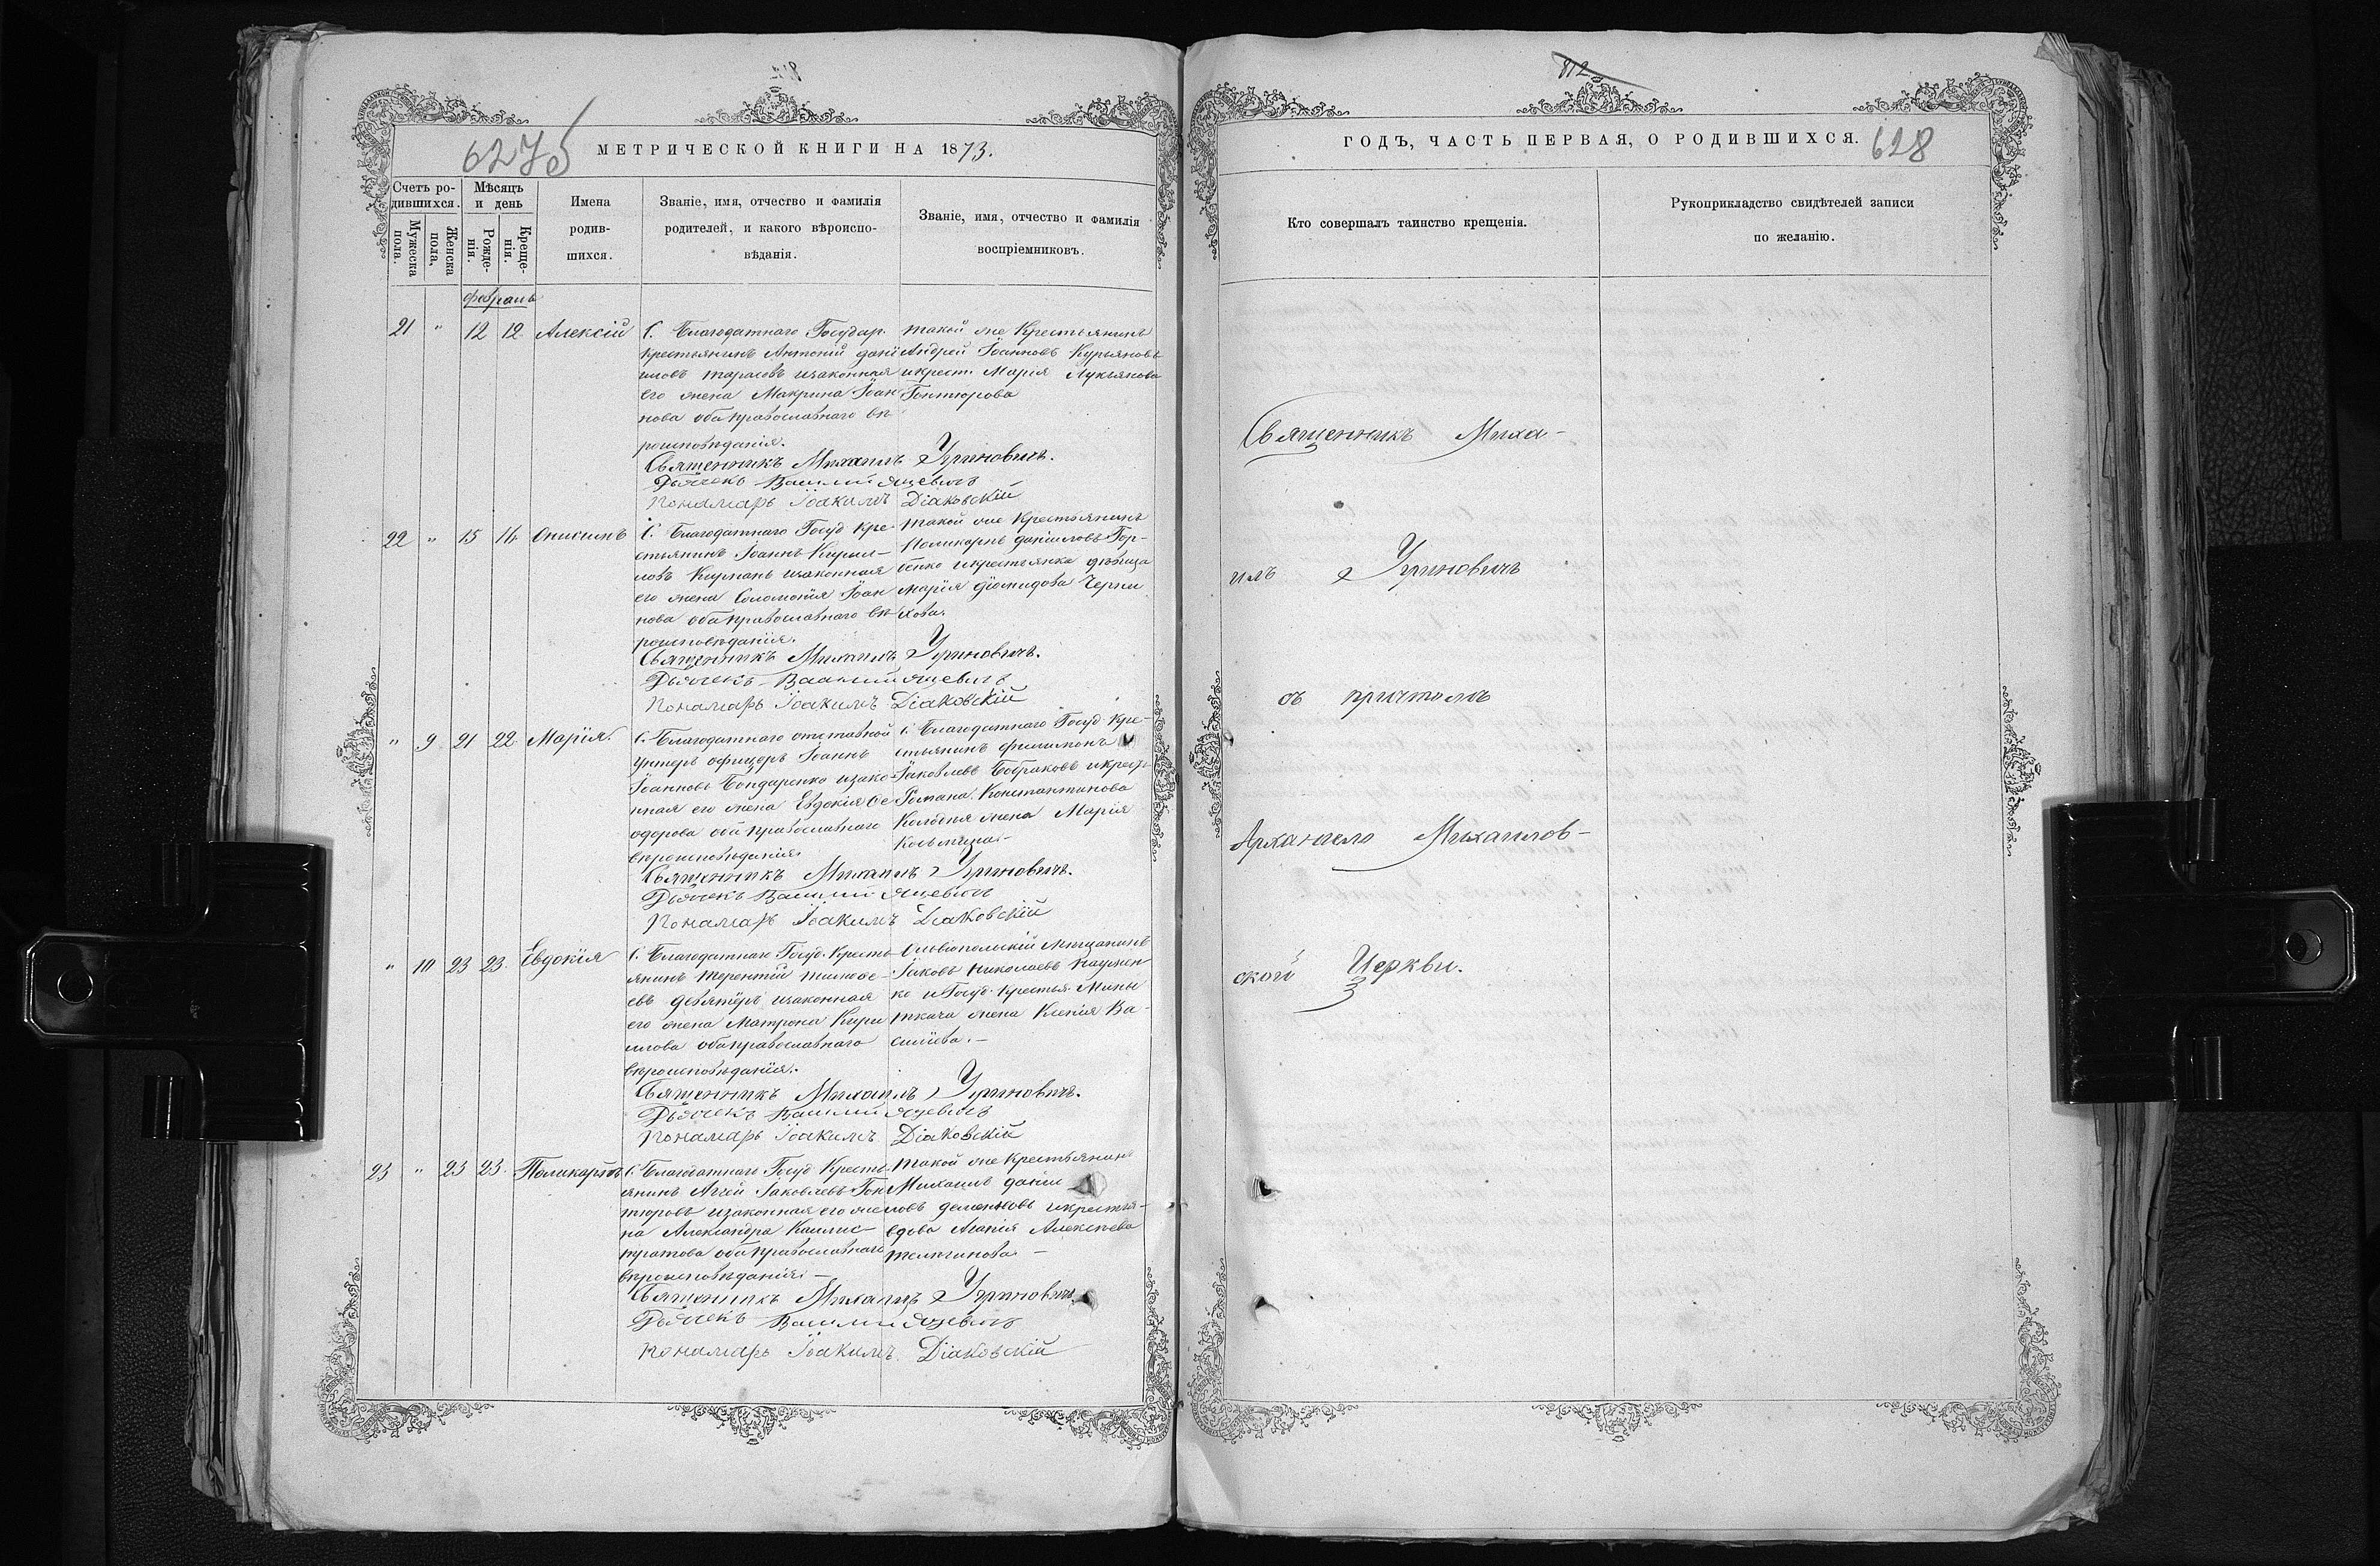 812
6276
МЕТРИЧЕСКОЙ КНИГИ НА 1873.
Счетъ ро-
дившихся.
Мужеска пола.
Женска пола.
Мѣсяцъ
и день
Рожде-
нія.
Креще-
нія.
Имена
родив-
шихся.
Званіе, имя, отчество и фамилія
родителей, и какого вѣроиспо-
вѣданія.
Званіе, имя, отчество и фамилія
воспріемниковъ.
февраль
21 " 12 12 Алексій
С. Благодатнаго Государ.
крестьянинъ Антоній Дані
иловъ Тарасовъ изаконная
его жена Макрина Іоан
нова оба православнаго вѣ
роисповѣданія.
такой же Крестьянинъ
Андрей Іоанновъ Курьяновъ
икрест. Марія Лукьянова
Гонтюрова
Священникъ Михаилъ Уриновичъ.
Дьячекъ Василій Яцевичъ
Пономарь Іоакимъ Діаковскій
22 " 13 14 Онисимъ
С. Благодатнаго Госуд Кре-
стьянинъ Іоаннъ Кирил-
ловъ изаконная
его жена Соломонія Іоан
нова оба православнаго вѣ
роисповѣданія.
такой же Крестьянинъ
Поликарпъ Даніиловъ Гор-
бенко икрестьянка дѣвица
Марія Діомидова Черни
хова.
Священникъ Михаилъ Уриновичъ.
Дьячекъ Василій Яцевичъ
Пономарь Іоакимъ Діаковскій
" 9 21 22 Марія
С. Благодатнаго отставной
унтеръ офицеръ Іоаннъ
Іоанновъ Бондаренко изако
нная его жена Евдокія Ѳе
одорова оба православнаго
вѣроисповѣданія
С. Благодатнаго Госуд. Кре-
стьянинъ Филимонъ
Іаковлевъ Бобраковъ икрест
Романа Константинова
жена Марія
Косьмина
Священникъ Михаилъ Уриновичъ.
Дьячекъ Василій Яцевичъ
Пономарь Іоакимъ Діаковскій
" 10 23 23 Евдокія
С. Благодатнаго Госуд. Кресть
янинъ Терентій Тимоѳе-
евъ изаконная
его жена Матрона Кири
лова оба православнаго
вѣроисповѣданія.
Ольвіопольскій Мещанинъ
Іаковъ Николаевъ Наумен
ко и Госуд. Крестья. Мины
Ткача жена Ксенія Ва-
силіева.
Священникъ Михаилъ Уриновичъ.
Дьячекъ Василій Яцевичъ
Пономарь Іоакимъ Діаковскій
23 " 23 23 Поликарпъ
С. Благодатнаго Госуд Кресть-
янинъ Аггей Іаковлевъ Гон
тюровъ изаконная его же
на Александра Калис-
тратова оба православнаго
вѣроисповѣданія
такой же Крестьянинъ
Михаилъ Даніи
ловъ Деменковъ икрестья-
вдова Агапія Алексѣева
Священникъ Михаилъ Уриновичъ.
Дьячекъ Василій Яцевичъ
Пономарь Іоакимъ Діаковскій
812
ГОДЪ, ЧАСТЬ ПЕРВАЯ, О РОДИВШИХСЯ.
628
Кто совершалъ таинство крещенія.
Рукоприкладство свидѣтелей записи
по желанію.
Священникъ Миха-
илъ Уриновичъ
съ причтомъ
Архангело Михаилов-
ской Церкви.